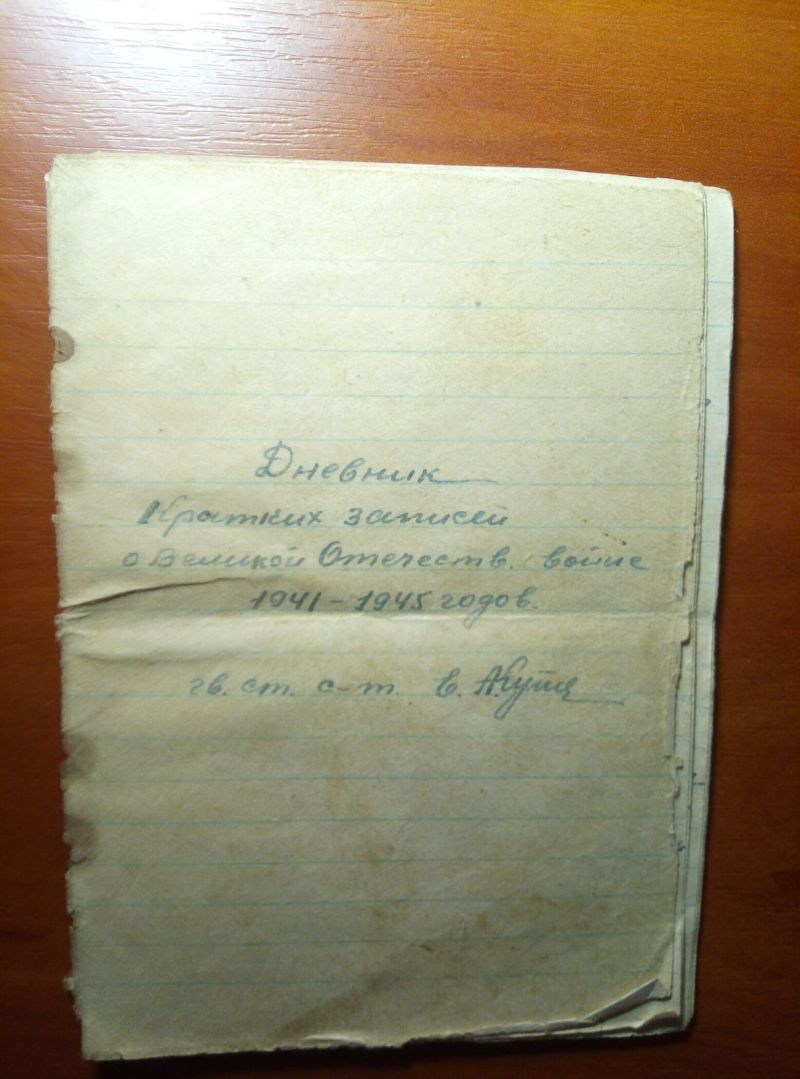 Дневник
Кратких записей
о Великой Отечеств. войне
1941-1945 годов.
гв. ст. с-т.